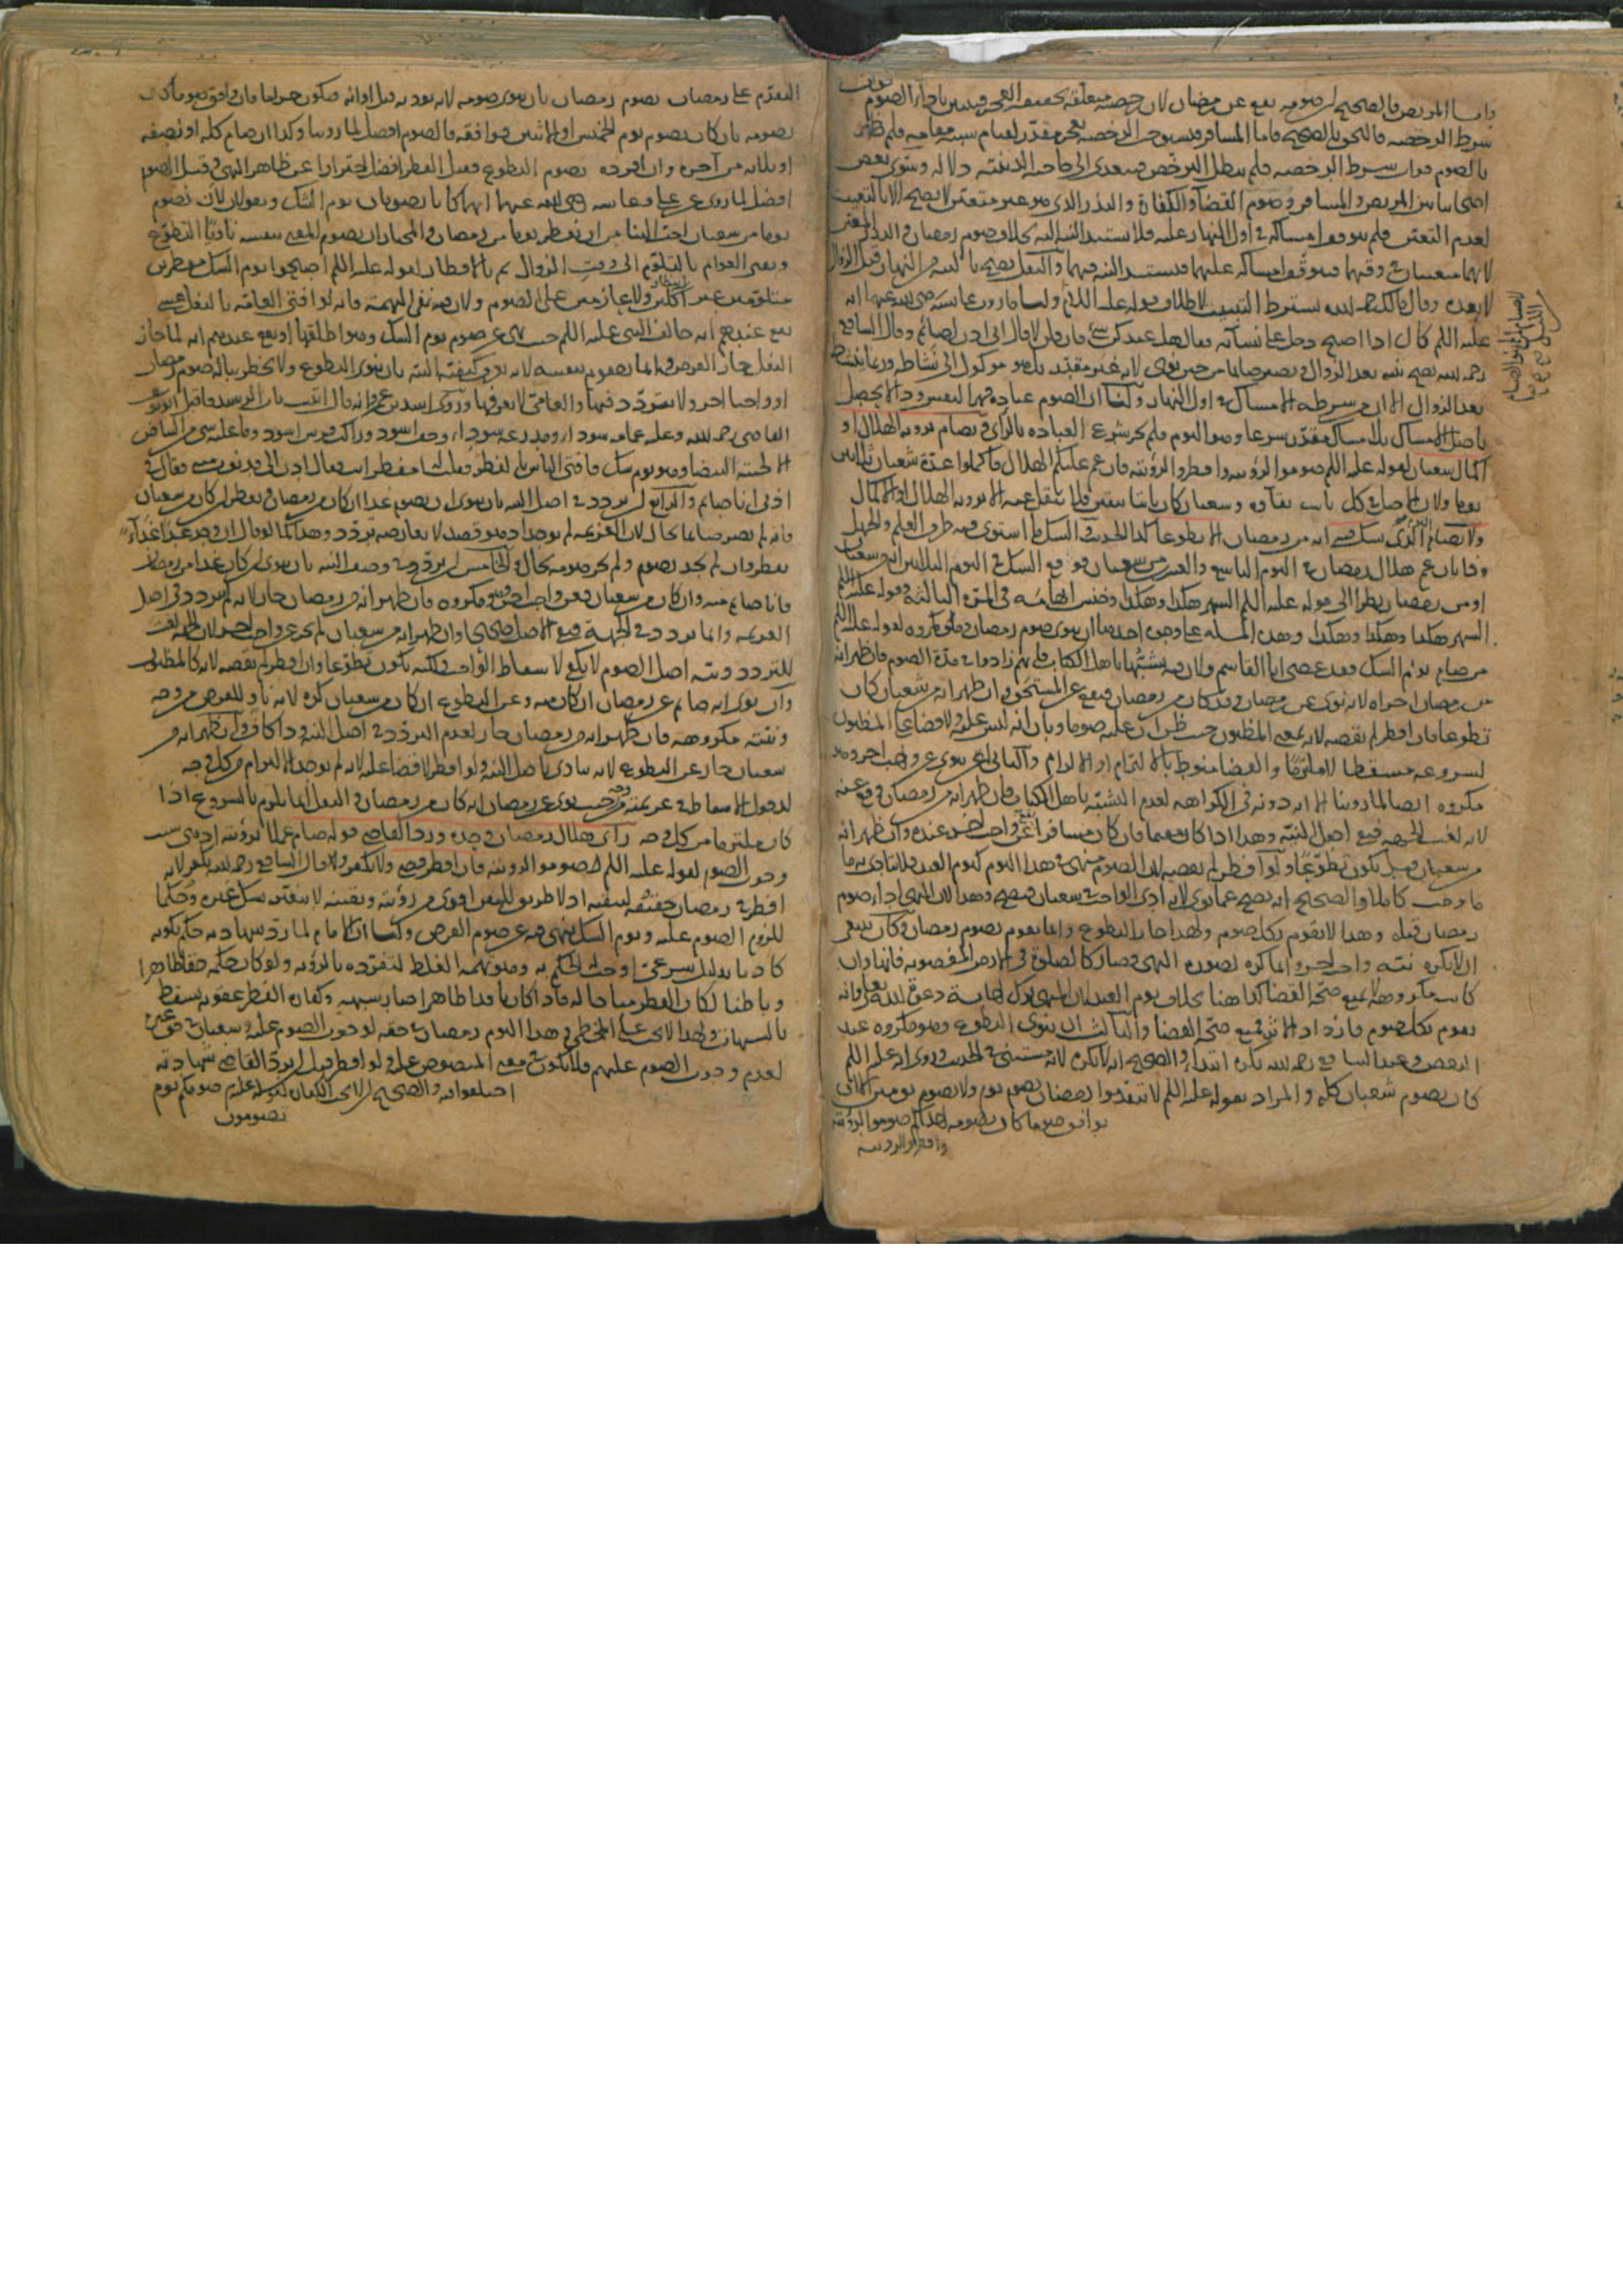 واما المريض فالصحيح ان صومه يقع عن رمضان لان رخصته متعلقه بحقيقه العجز فيتبين باداء الصوم فوات
شرط الرخصه فالتحق بالصحيح فاما المسافر فيستوجب الرخصه بعجز مقدر لقيام سببه مقامه فلم يظهر
بالصوم فوات شرط الرخصه فلم يبطل الترخص فيتعدى الى حاجته الدينيه دلاله وسوى بعض
اصحابنا بين المريض والمسافر وصوم القضآ والكفارة والنذر الذى هو غير متعين لا يصح الا بالتبييت
لعدم التعين فلم يتوقف امساكه فى اول النهار عليه فلا تستند النيه اليه بخلاف صوم رمضان والنذر المعين
لانهما متعينان فى وقتهما فيتوقف امساكه عليهما فتستند النيه فيهما والنفل يصح بالنيه من النهار قبل الزوال
لا بعده وقال مالك رحمه الله يشترط التبييت لاطلاق قوله عليه السلام ولنا ما روت عايشه رضى الله عنها انه
عليه السلم كان اذا اصبح دخل على نسائه فقال هل عندكن شئ فان قلن لا قال انى اذن لصائم وقال الشافعى
رحمه الله يصح بنيه بعد الزوال ويصير صايما من حين نوى لانه غير مقدر بل هو موكول الى نشاطه وربما ينشط
بعد الزوال الا ان من شرطه الامساك فى اول النهار ولنا ان الصوم عباده قهر النفس وذا لا يحصل
باصل الامساك بل بامساك مقدر شرعا وهو اليوم فلم يجز شرع العباده بالرأى ويصام برويه الهلال او
اكمال شعبان لقوله عليه السلم صوموا لرؤيته وافطروا لرؤيته فان غم عليكم الهلال فاكملوا عدة شعبان ثلاثين
يوما ولان الاصل فى كل ثابت بقآوه وشعبان كان ثابتا بيقين فلا ينتقل عنه الا برويه الهلال او الاكمال
ولا يصام الذى شك فيه انه من رمضان الا تطوعا كذا الحديث والشك ما استوى فيه طرف العلم والجهل
وذا بان غم هلال رمضان فى اليوم التاسع والعشرين من شعبان فوقع الشك فى اليوم الثلاثين انه من شعبان
او من رمضان نظرا الى قوله عليه السلم الشهر هكذا وهكذا وهكذا وخنس ابهامه فى المرة الثالثه وقوله عليه السلم
الشهر هكذا وهكذا وهكذا وهذه المسله على وجوه احدها ان ينوى صوم رمضان وهو مكروه لقوله عليه السلم
من صام يوم الشك فقد عصى ابا القاسم ولان فيه تشبها باهل الكتاب فانهم زادوا فى مدة الصوم فان ظهر انه
من رمضان اجزاه لانه نوى عن رمضان وقد كان من رمضان فيقع عن المستحق وان ظهر انه من شعبان كان
تطوعا فان افطر لم يقضه لانه بمعنى المظنون حيث ظن ان عليه صوما وبان انه ليس عليه ولا قضا على المظنون
لشروعه مسقطا لا ملتزما والقضا منوط بالالتزام او الالزام والثانى ان ينوى عن واجب اخر وهو
مكروه ايضا لما روينا الا انه دونه فى الكراهه لعدم التشبه باهل الكتاب فان ظهر انه من رمضان وقع عنه
لانه لغت الجهه فبقى اصل النيه وهذا اذا كان مقيما فان كان مسافرا يقع عن واجب اخر عنده وان ظهر انه
من شعبان قيل يكون تطوعا ولو افطر لم يقضه لان الصوم منهى فى هذا اليوم كيوم العيد فلا يتادى به ما
ما وجب كاملا والصحيح انه يصح عما نوى لانه ادى الواجب فى شعبان فيصح وهذا لان المنهى اداء صوم
رمضان قبله وهذا لا يقوم بكل صوم ولهذا جاز التطوع وانما يقوم بصوم رمضان وكان ينبغى
ان لا تكره نيته واجب اخر وانما كره لصوره النهى فصار كالصلوة فى الارض المغصوبه فانها وان
كانت مكروهه لا يمنع صحة القضا كذا هنا بخلاف يوم العيد لان المنهى ترك اجابة دعوة الله تعالى وانه
يقوم بكل صوم فازداد الاثر فمنع صحة القضا والثالث ان ينوى التطوع وهو مكروه عند
البعض وعند الشافعى رحمه الله يكره ابتداء والصحيح انه لا يكره لانه مستثنى فى الحديث وروى انه عليه السلم
كان يصوم شعبان كله والمراد بقوله عليه السلم لا تتقدموا رمضان بصوم يوم ولا بصوم يومين الا ان
يوافق صوما كان يصومه احدكم صوموا لرؤيته
وافطروا لرؤيته
التقدم على رمضان بصوم رمضان بان ينوى صومه لانه يوديه قبل اوانه فيكون حراما فان وافق يوما كان
يصومه بان كان يصوم يوم الخميس او الاثنين فوافقه فالصوم افضل لما روينا وكذا ان صام كله او نصفه
او ثلاثه من آخره وان افرده بصوم التطوع فقيل الفطر افضل احترازا عن ظاهر النهى وقيل الصوم
افضل لما روى عن على وعايشه رضى الله عنهما انهما كانا يصومان يوم الشك ويقولان لان نصوم
يوما من شعبان احب الينا من ان نفطر يوما من رمضان والمختار ان يصوم المفتى بنفسه ناويا التطوع
ويفتى العوام بالتلوم الى وقت الزوال ثم بالافطار لقوله عليه السلم اصبحوا يوم الشك مفطرين
متلومين غير آكلين ولا عازمين على الصوم ولان فيه نفى التهمة فانه لو افتى العامه بالنفل عسى
يقع عندهم انه خالف النبى عليه السلم حيث نهى عن صوم يوم الشك وهو اطلقها او يقع عندهم انه لما جاز
النفل جاز الفرض وانما يصوم بنفسه لانه يعرف كيفية النيه بان ينوى التطوع ولا يخطر بباله صوم رمضان
او واجبا اخر ولا يتردد فيها والعامى لا يعرفها وروى اسد بن عمرو انه قال اتيت باب الرشيد فاقبل ابو يوسف
القاضى رحمه الله وعليه عمامه سودا ومدرعه سودا وخف اسود وراكب فرس اسود وما عليه شئ من البياض
الا لحيته البيضا وهو يوم شك فافتى الناس بالفطر فقلت له امفطر انت فقال ادن الى فدنوت منه فقال فى
اذنى انا صايم والرابع ان يردد فى اصل النيه بان ينوى ان يصوم غدا ان كان من رمضان ويفطر ان كان من شعبان
فانه لم يصر صايما بحال لان العزيمه لم توجد اذ هو قصد لا يعارضه تردد وهذا كما لو قال ان وجد غدا غدآء
يفطر وان لم يجد يصوم ولم يجز صومه بحال والخامس ان يردد فى وصف النيه بان ينوى ان كان غدا من رمضان
فانا صايم منه وان كان من شعبان فعن واجب اخر وهو مكروه فان ظهر انه من رمضان جاز لانه لم يردد فى اصل
العزيمه وانما تردد فى الجهه فبقى الاصل وان ظهر انه من شعبان لم يجز عن واجب اخر لان الجهه لغت
للتردد ونيه اصل الصوم لا يكفى لاسقاط الواجب ولكنه يكون تطوعا وان افطر لم يقضه لانه كالمظنون
وان نوى انه صايم عن رمضان ان كان منه وعن التطوع ان كان من شعبان كره لانه ناو للفرض من وجه
ونيته مكروهه فان ظهر انه من رمضان جاز لعدم التردد فى اصل النيه وذا كاف وان ظهر انه من
شعبان جاز عن التطوع لانه يتادى باصل النيه ولو افطر لا قضا عليه لانه لم يوجد الالتزام من كل وجه
لدخول الاسقاط فى عزيمته من وجه حيث نوى عن رمضان ان كان من رمضان والنفل انما يلزم بالشروع اذا
كان ملتزما من كل وجه رأى هلال رمضان وحده ورد القاضى قوله صام عملا برؤيته اذ هى سبب
وجوب الصوم لقوله عليه السلم صوموا لرويته فان افطر قضى ولا يكفر وقال الشافعى رحمه الله يكفر لانه
افطر فى رمضان حقيقه لتيقنه اذ لا طريق للتيقن اقوى من رؤيته ويقينه لا يتغير بشك غيره وحكما
للزوم الصوم عليه ويوم الشك ينهى فيه عن صوم الفرض ولنا ان الامام لما رد شهادته حكم بكونه
كاذبا بدليل شرعى اوجب له الحكم به وهو تهمه الغلط لتفرده بالرؤيه ولو كان حكمه حقا ظاهرا
وباطنا لكان الفطر مباحا له فاذا كان نافذا ظاهرا صار شبهه وكفاره الفطر عقوبه يسقط
بالشبهات ولهذا لا يجب على المخطئ وهذا اليوم رمضان فى حقه لوجوب الصوم عليه وشعبان فى حق غيره
لعدم وجوب الصوم عليهم فلا يكون فى معنى المنصوص عليه ولو افطر قبل ان يرد القاضى شهادته
اختلفوا فيه والصحيح ان لا يجب الكفاره لقوله عليه السلم صومكم يوم
تصومون